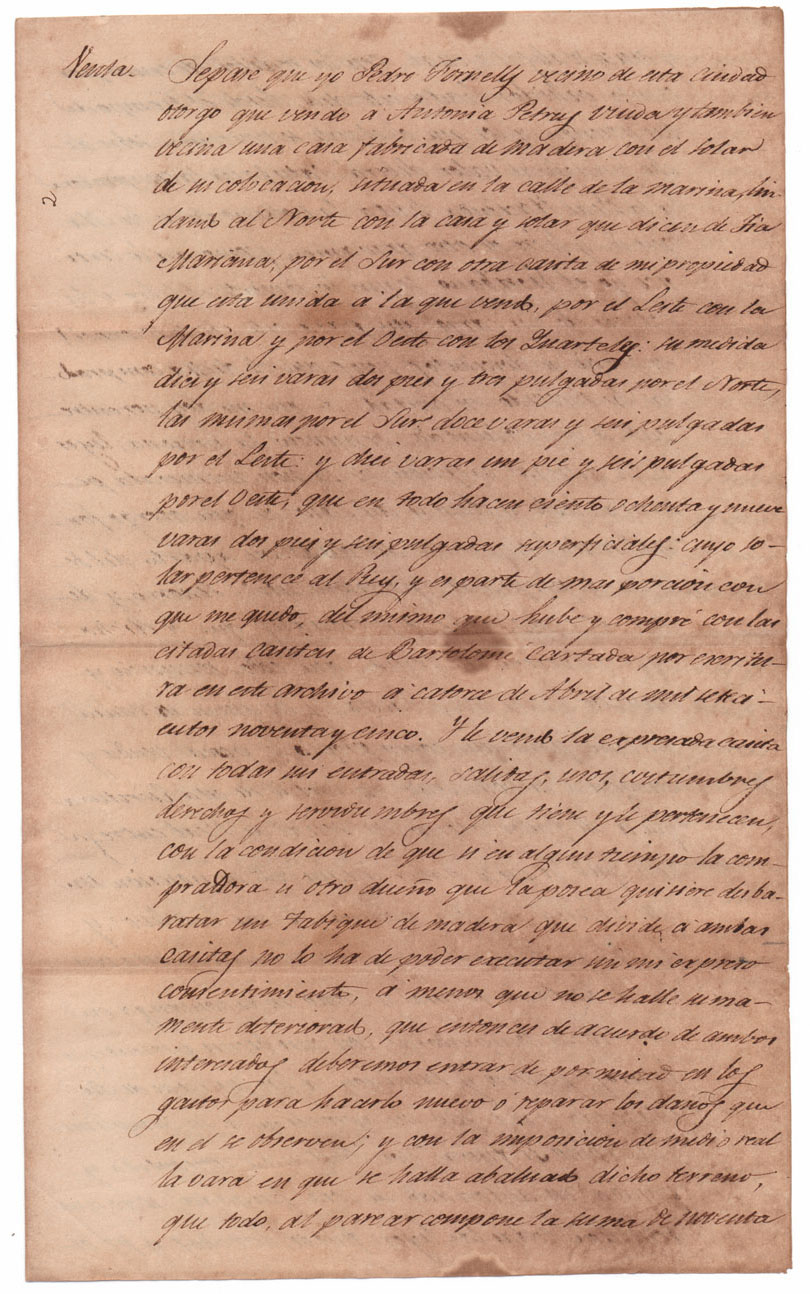 Venta. Sepase que yo Pedro Fornells vecino de esta ciudad
otorgo que vendo á Antonia Petrus viuda y tambien
vecina una casa fabricada de madera con el solar
de su colocacion, situada en la calle de la marina, lin-
2
dando al Norte con la casa y solar que dicen de Tia
Mariana, por el Sur con otra casita de mi propiedad
que esta unida á la que vendo, por el Leste con la
Marina y por el Oeste con los Quarteles: su medida
diez y seis varas dos pies y tres pulgadas por el Norte,
las mismas por el Sur doce varas y seis pulgadas
por el Leste: y diez varas un pie y seis pulgadas
por el Oeste, que en todo hacen ciento ochenta y nueve
varas dos pies y seis pulgadas superficiales: cuyo so-
lar pertenece al Rey, y es parte de mas porcion con
que me quedo, del mismo que hube y compré con las
citadas casitas de Bartolomé Cartada por escritu-
ra en este archivo á catorce de Abril de mil sete ci-
entos noventa y cinco. Y le vendo la expresada casita
con todas sus entradas, salidas, usos, costumbres
derechos y servidumbres que tiene y le pertenecen,
con la condicion de que si en algun tiempo la com-
pradora ú otro dueño que la posea quisiere desba-
ratar un tabique de madera que divide á ambas
casitas no lo ha de poder executar sin mi expreso
consentimiento, á menos que no se halle suma-
mente deteriorado, que entonces de acuerdo de ambos
interesados deberemos entrar de por mitad en los
gastos para hacerlo nuevo ó reparar los daños que
en el se observen; y con la imposicion de medio real
la vara en que se halla abaluado dicho terreno,
que todo, al parear compone la suma de noventa